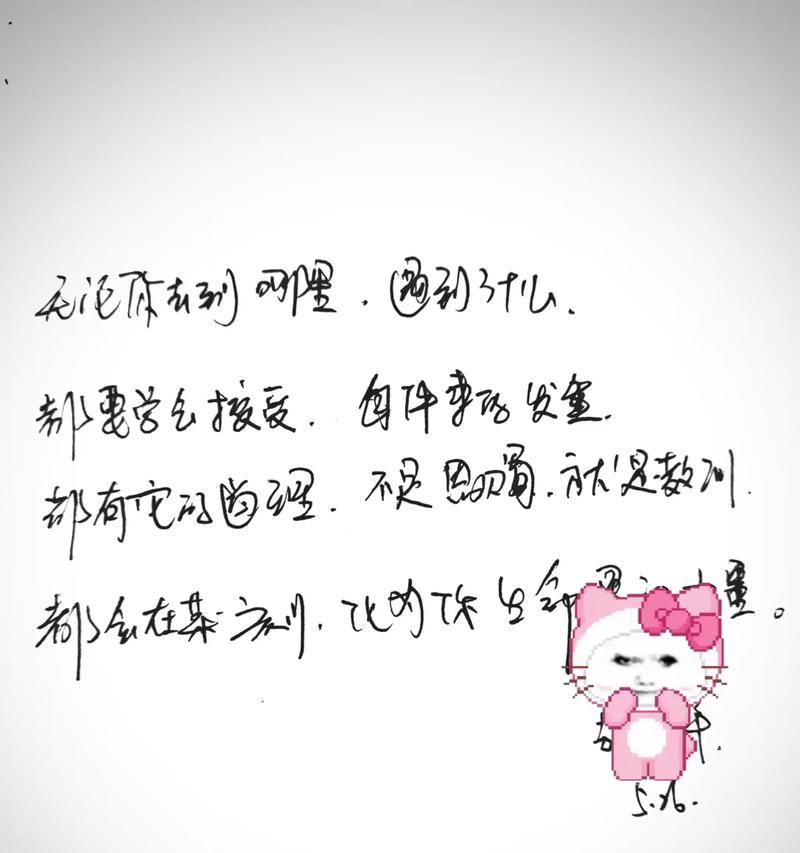 无论你去到哪里，遇到了什么，
都要学会接受，每件事的发生，
都有它的道理，不是恩赐，就是教训，
都会在某一刻，化为你生命里 量。
5.26.